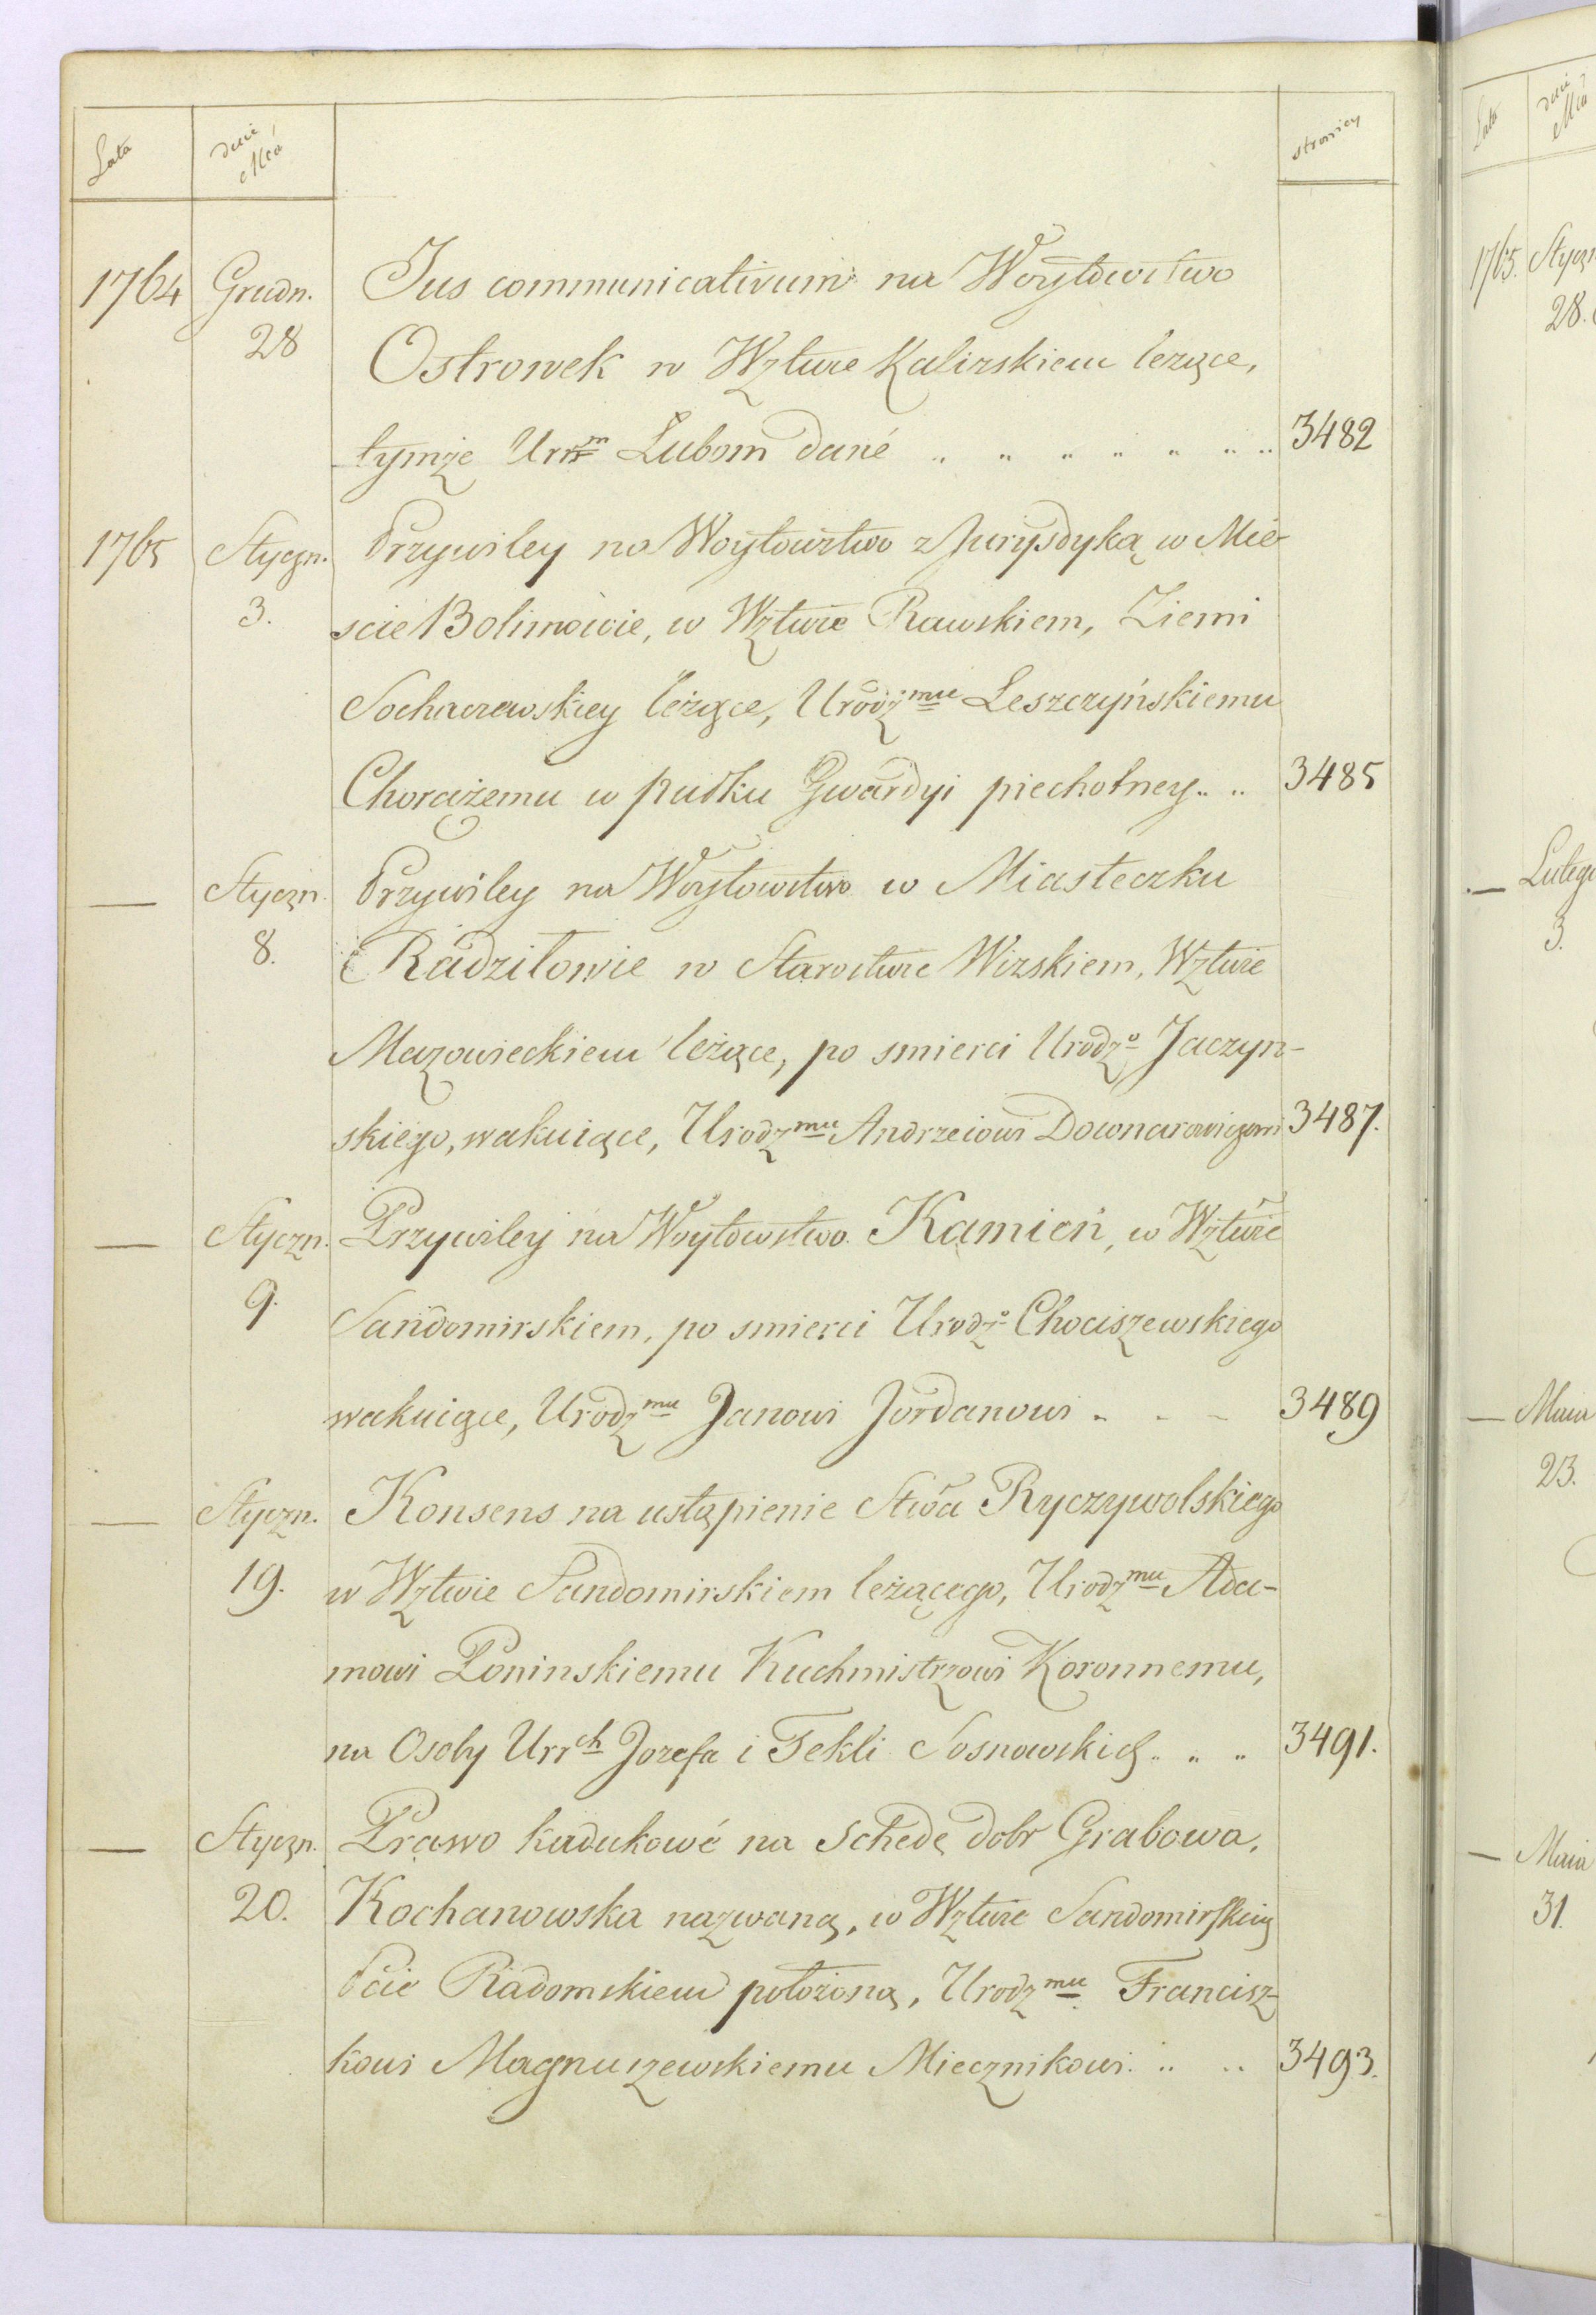 Lata dnie Mcá stronicy
1764 Grudn. Jus communicativum na Woytowstwo
28 Ostrowek w Wztwie Kaliskiem leżące,
tymże Urr<sup>m</sup> Lubom dané 3482
1765 Styczn. Przywiley na Woytowstwo z Jurysdyką w Mie-
3. scie Bolimowie, w Wztwie Rawskiem, Ziemi
Sochaczewskiey leżące, Urodz<sup>mu</sup> Leszczyńskiemu
Chorążemu w pułku Gwardyi piechotney 3485
— Styczn. Przywiley na Woytowstwo w Miasteczku
8. Radziłowie w Starostwie Wizskiem, Wztwie
Mazowieckiem leżące, po smierci Urodz<sup>o</sup> Jaczyn-
skiego, wakuiące, Urodz<sup>mu</sup> Andrzeiowi Downarowiczowi 3487.
— Styczn. Przywiley na Woytowstwo Kamień, w Wztwie
9. Sandomirskiem, po smierci Urodz<sup>o</sup> Chociszewskiego
wakuiące, Urodz<sup>mu</sup> Janowi Jordanowi 3489
— Styczn. Konsens na ustąpienie Stwa Ryczywolskiego
19. w Wztwie Sandomirskiem leżącego, Urodz<sup>mu</sup> Ada-
mowi Poninskiemu Kuchmistrzowi Koronnemu,
na Osoby Urr<sup>ch</sup> Jozefa i Tekli Sosnowskich 3491.
— Styczn. Prawo kadukowé na Schedę dobr Grabowa,
20. Kochanowska nazwaną, w Wztwie Sandomirskiem
Pcie Radomskiem położoną, Urodz<sup>mu</sup> Francisz-
kowi Magnuszewskiemu Miecznikowi 3493.
Lata dnie Mcá
1765. Stycz
28.
— Lutego
3.
— Maia
23.
— Maia
31.